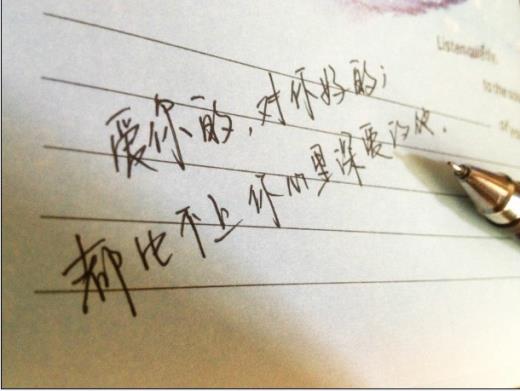 爱你的,对你好的;
都比不上你心里深爱的
Listen quietly,
to the